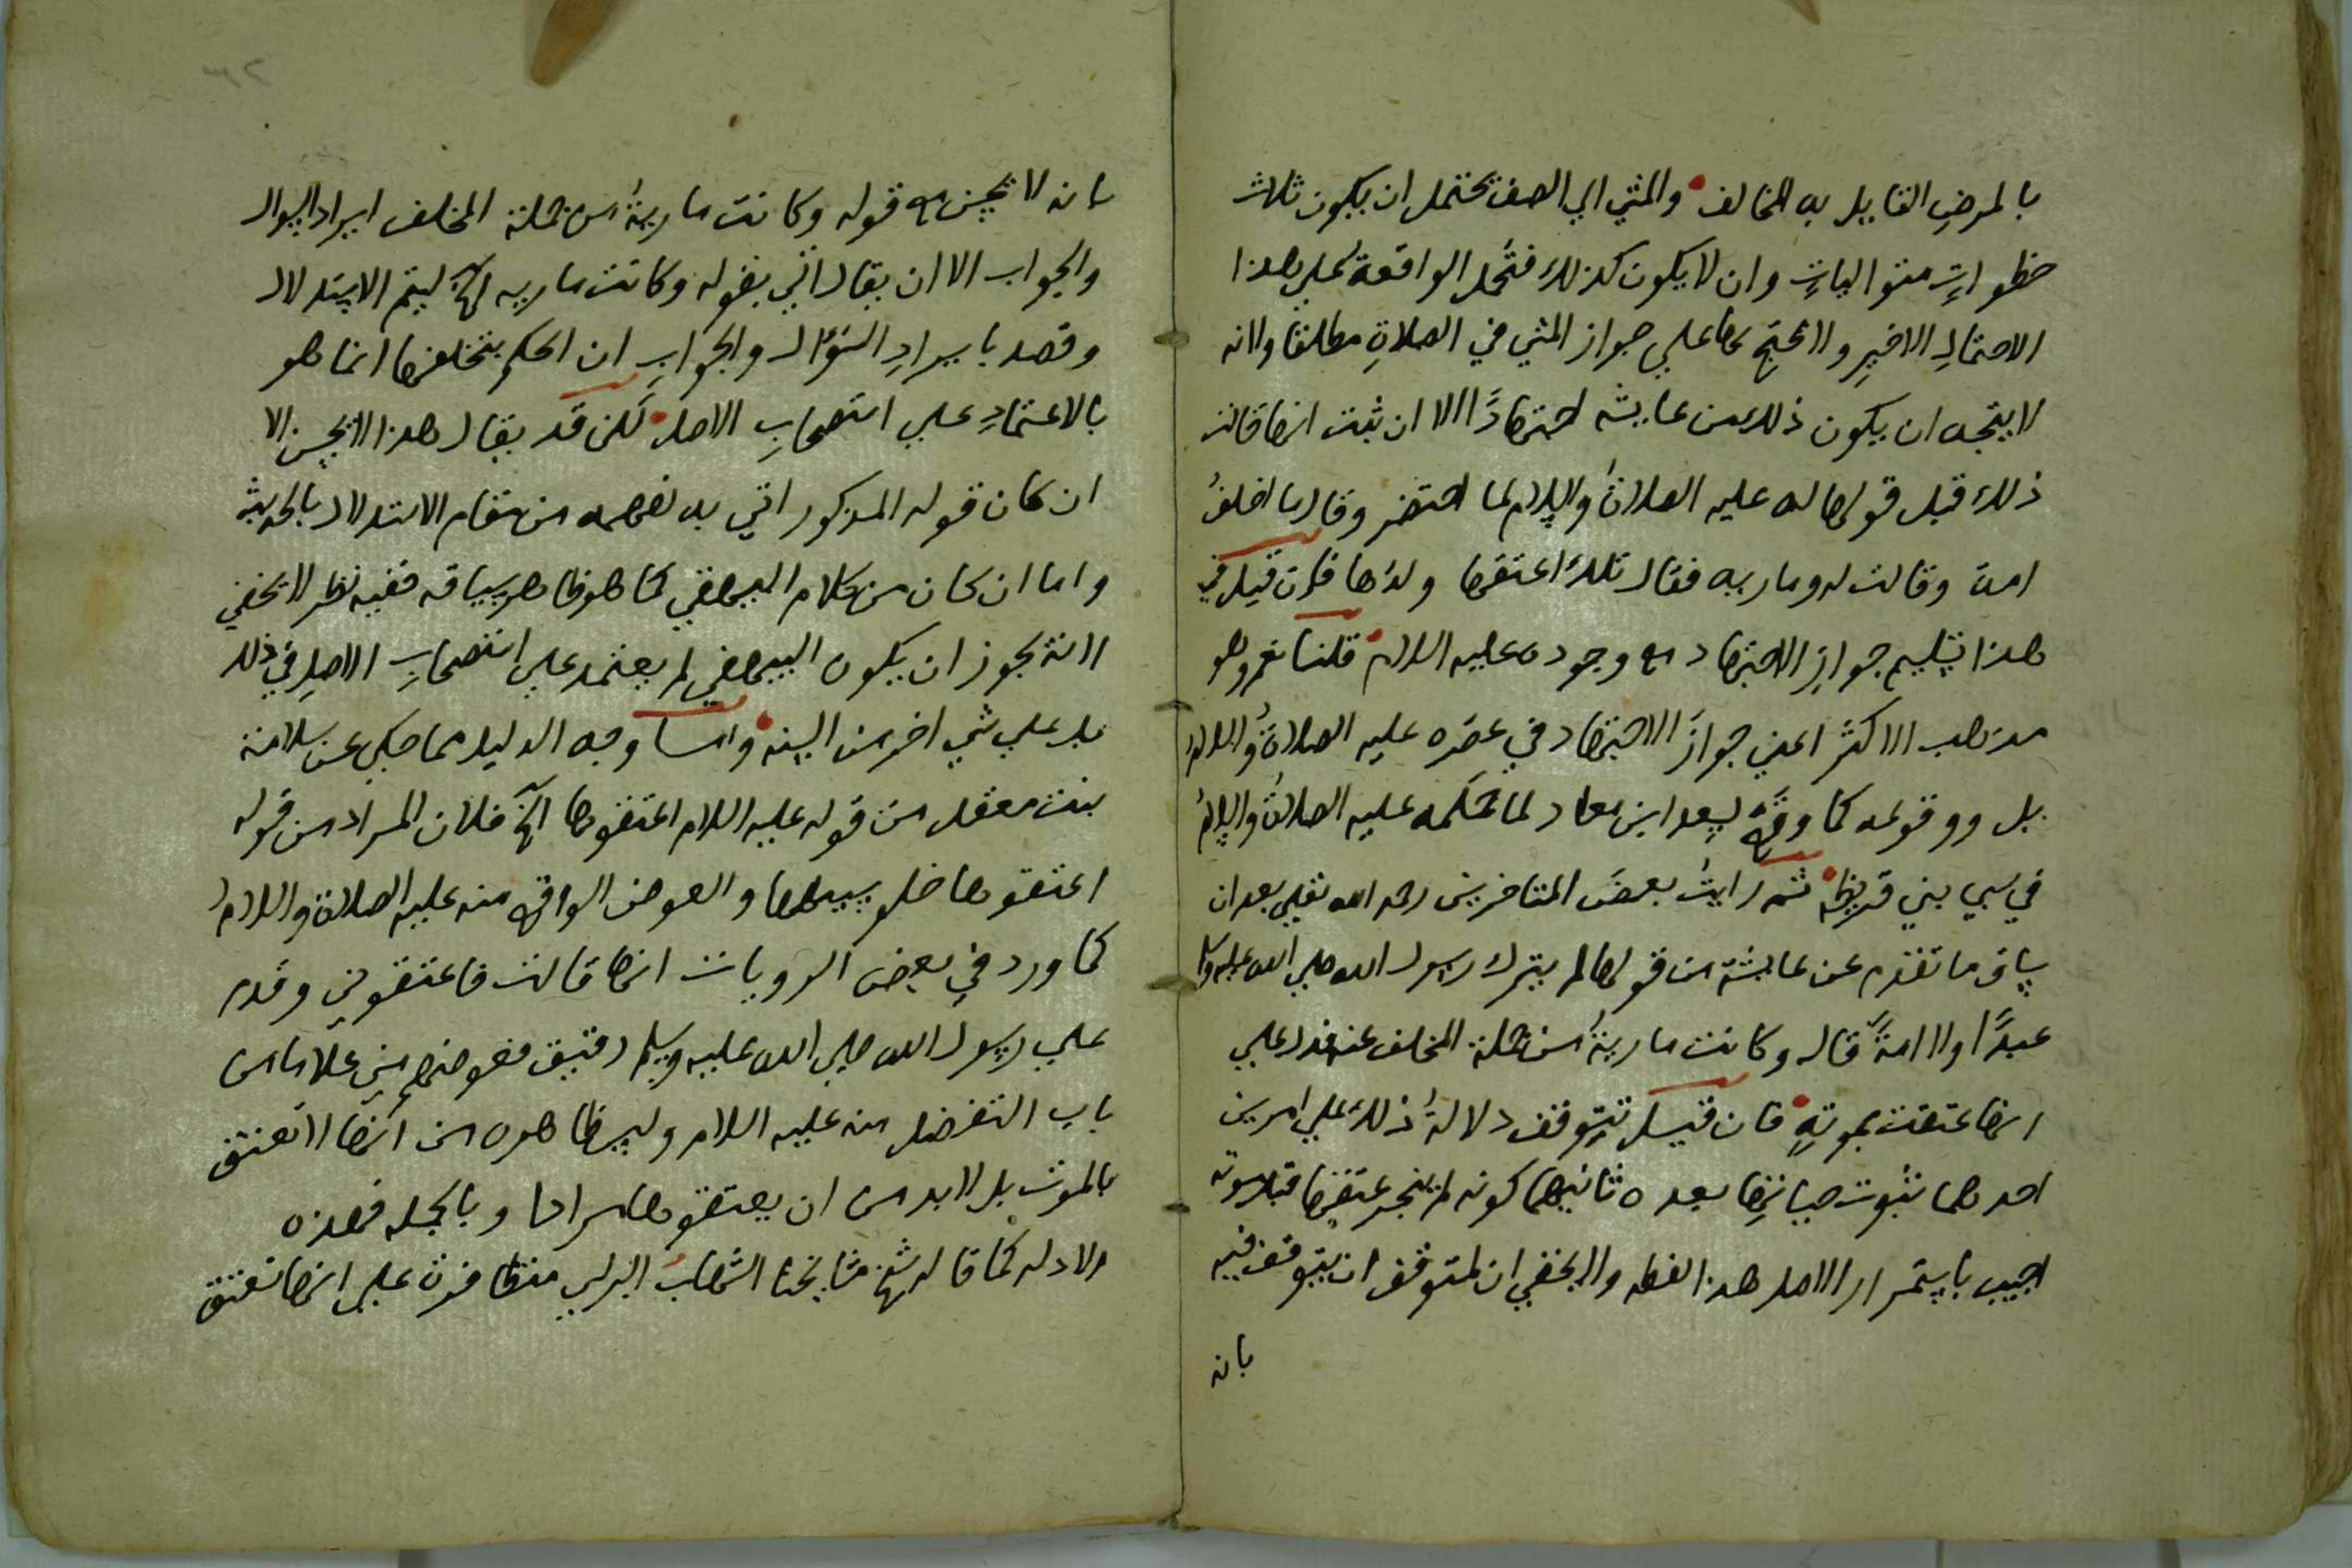 بالمرضِ القايل به المخالف والمشي الي الصف يحتمل ان يكون ثلاث
خطوات متواليات وان لا يكون كذلك فتحمل الواقعة على هذا
الاحتمالِ الاخيرِ والا لاحتج بها علي جواز المشي في الصلاةِ مطلقا وانه
لا يتجه ان يكون ذلك من عايشه اجتهادًا الا ان ثبت انها قالت
ذلك قبل قولها له عليه الصلاةُ والسلام لما احتضر وقال ما اخلفُ
امة وقالت له ومارية فقال تلك اعتقها ولدُها فان قيل في
هذا تسليم جوازِ الاجتهاد مع وجوده عليه السلام قلنا نعم وهو
مذهب الاكثر اعني جوازَ الاجتهاد في عصره عليه الصلاةُ والسلامُ
بل ووقوعه كما وقع لسعد ابن معاد لما حكمه عليه الصلاةُ والسلامُ
في سبي بني قريظه ثم رايتُ بعضَ المتاخرين رحمه الله تعالي بعد ان
ساق ما تقدم عن عايشة من قولها لم يترك رسول الله صلي الله عليه وسلم
عبدًا ولا امةً قال وكانت ماريةُ من جملة المخلف عنه فدل علي
انها عتقت بموتهِ فان قيل تتوقف دلالةُ ذلك علي امرين
احدهما ثبوت حياتها بعده ثانيهما كونه لم ينجز عتقها قبل موته
اجيب باستمرار الاصل هذا لفظه ولا يخفي ان لمتوقف ان يتوقف فيه
بانه
بانه لا يحسن مع قوله وكانت ماريةُ من جملة المخلف ايراد السوال
والجواب الا ان يقال اتي بقوله وكانت ماريه الخ ليتم الاستدلال
وقصد بايرادِ السؤال والجوابِ ان الحكم بتخلفها انما هو
بالاعتمادِ علي استصحابِ الاصل لكن قد يقال هذا لا يحسن الا
ان كان قوله المذكور اتي به لفهمه من مقام الاستدلال بالحديث
واما ان كان من كلام البيهقي كما هو ظاهر سياقه ففيه نظر لا يخفي
لانه يجوز ان يكون البيهقي لم يعتمد علي استصحابِ الاصلِ في ذلك
بل علي شي اخر من البينه واما وجه الدليل مما حكي عن سلامة
بنت معقل من قوله عليه السلام اعتقوها الخ فلان المراد من قوله
اعتقوها خلو سبيلها والعوض الواقع منه عليه الصلاة والسلامُ
كما ورد في بعض الروايات انها قالت فاعتقوني وقدم
علي رسول الله صلي الله عليه وسلم رقيق فعوضهم مني غلاما من
باب التفضل منه عليه السلام وليس ظاهره من انها لا تعتق
بالموت بل لا بد من ان يعتقوها مرادا وبالجمله فهذه
الادله كما قاله شيخ مشايخنا الشهاب الرملي متظافرة علي انها تعتق